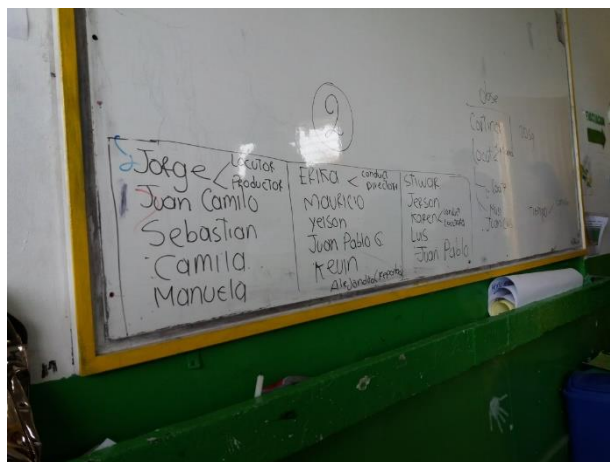 2
Jorge < Locutor
Productor
Juan Camilo
Sebastian
Camila
Manuela
Erika < conduct
Directora
Mauricio
Yeison
Juan Pablo G
Kevin
Alejandra
Stiwar
Jerson
Karen < conduct
Luis
Juan Pablo
Cortina